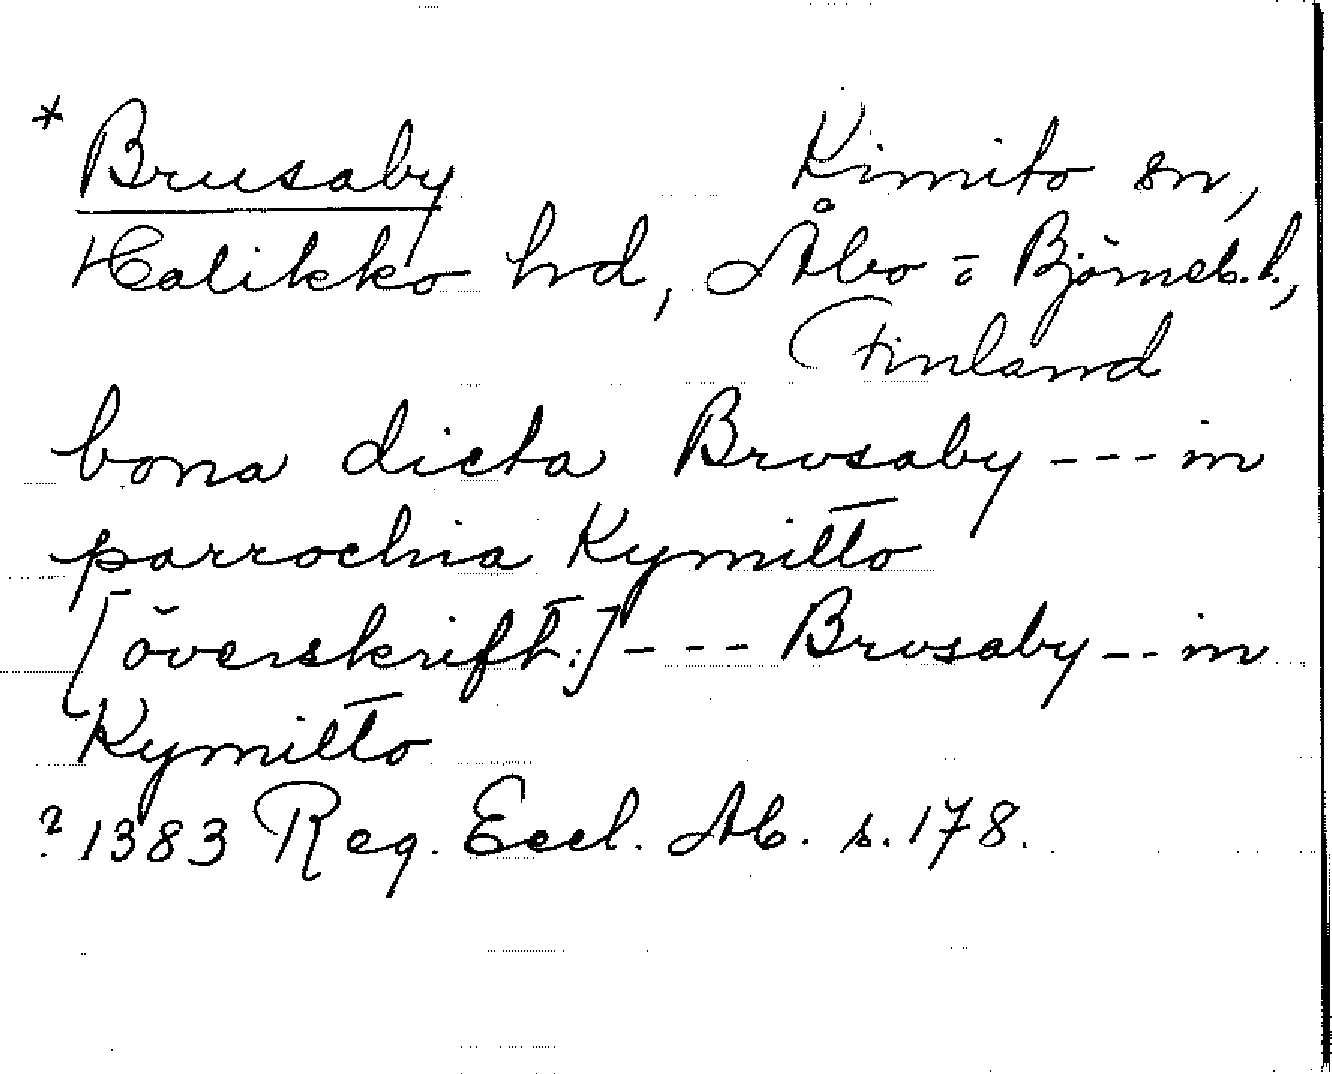 * Brusaby Kimito sn,
Halikko hd, Åbo o Björneb. l.,
Finland
bona dicta Brusaby --- in
parrochia Kymitto
[överskrift:] --- Brusaby -- in
Kymitto
? 1383 Reg. Eccl. Ab. s. 178.